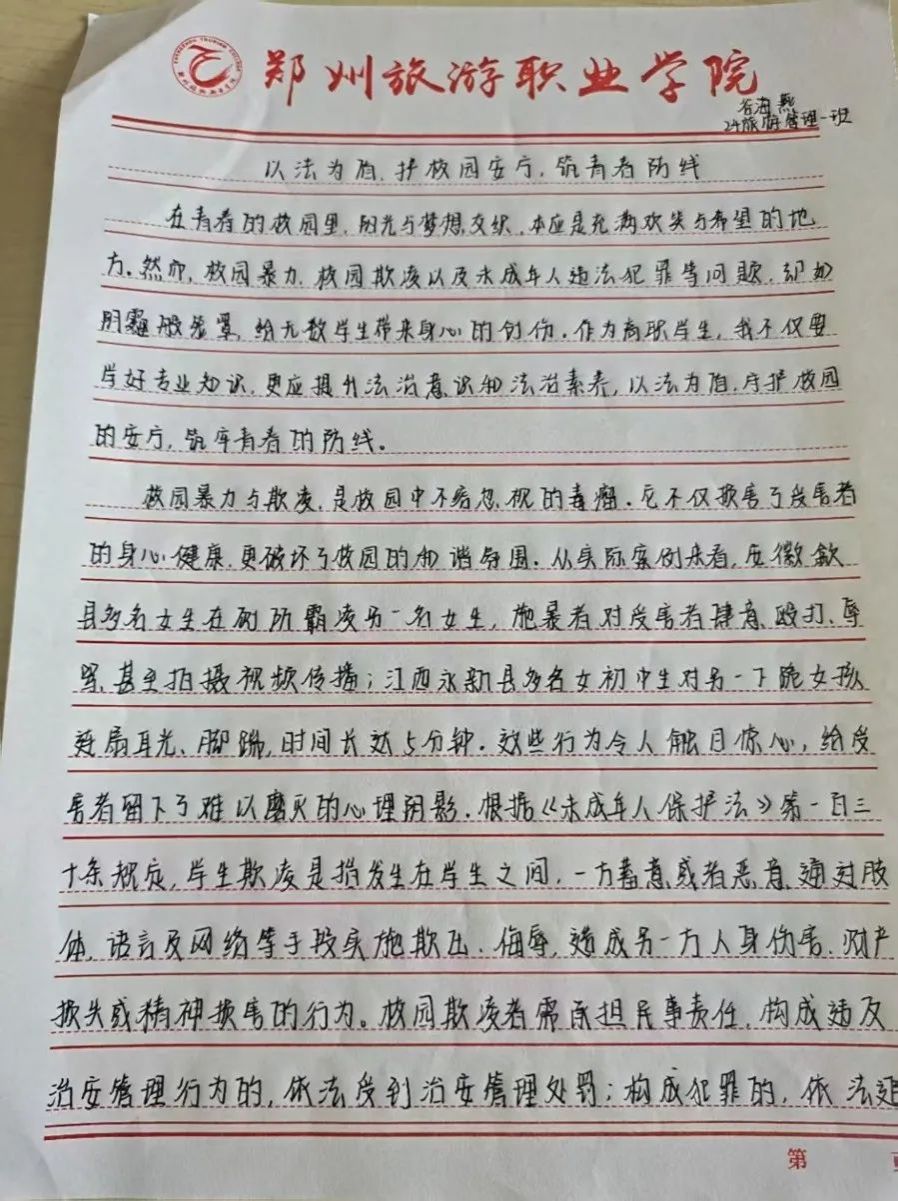 郑州旅游职业学院
谷海燕
24旅游管理一班
以法为盾,护校园安宁,筑青春防线
在青春的校园里,阳光与梦想交织,本应是充满欢笑与希望的地
方。然而,校园暴力、校园欺凌以及未成年人违法犯罪等问题,却如
阴霾般笼罩,给无数学生带来身心的创伤。作为高职学生,我不仅要
学好专业知识,更应提升法治意识和法治素养,以法为盾,守护校园
的安宁,筑牢青春的防线。
校园暴力与欺凌,是校园中不容忽视的毒瘤。它不仅损害了受害者
的身心健康,更破坏了校园的和谐氛围。从实际案例来看,安徽歙
县多名女生在厕所霸凌另一名女生,施暴者对受害者肆意殴打、辱
骂,甚至拍摄视频传播;江西永新县多名女初中生对另一下跪女孩
连扇耳光、脚踹,时间长达5分钟。这些行为令人触目惊心,给受
害者留下了难以磨灭的心理阴影。根据《未成年人保护法》第一百三
十条规定,学生欺凌是指发生在学生之间,一方蓄意或者恶意通过肢
体、语言及网络等手段实施欺压、侮辱,造成另一方人身伤害、财产
损失或精神损害的行为。校园欺凌者需承担民事责任,构成违反
治安管理行为的,依法受到治安管理处罚;构成犯罪的,依法追
第